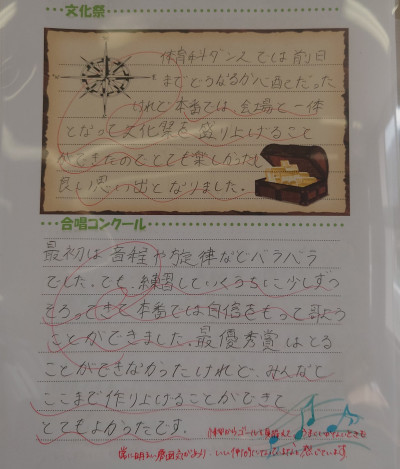 文化祭
体育祭ダンスでは前日
までどうなるか心配だった
けれど本番では、会場と一体
となって文化祭を盛り上げること
ができたのでとても楽しかったし
良い思い出となりました。
合唱コンクール
最初は音程や旋律などバラバラ
でした。でも、練習していくうちに少しずつ
そろってきて本番では自信をもって歌よう
ことができました。最優秀賞はとる
ことができなかったけれど、みんなで
ここまで作り上げることができて
とてもよかったです。
常に明るい雰囲気があり